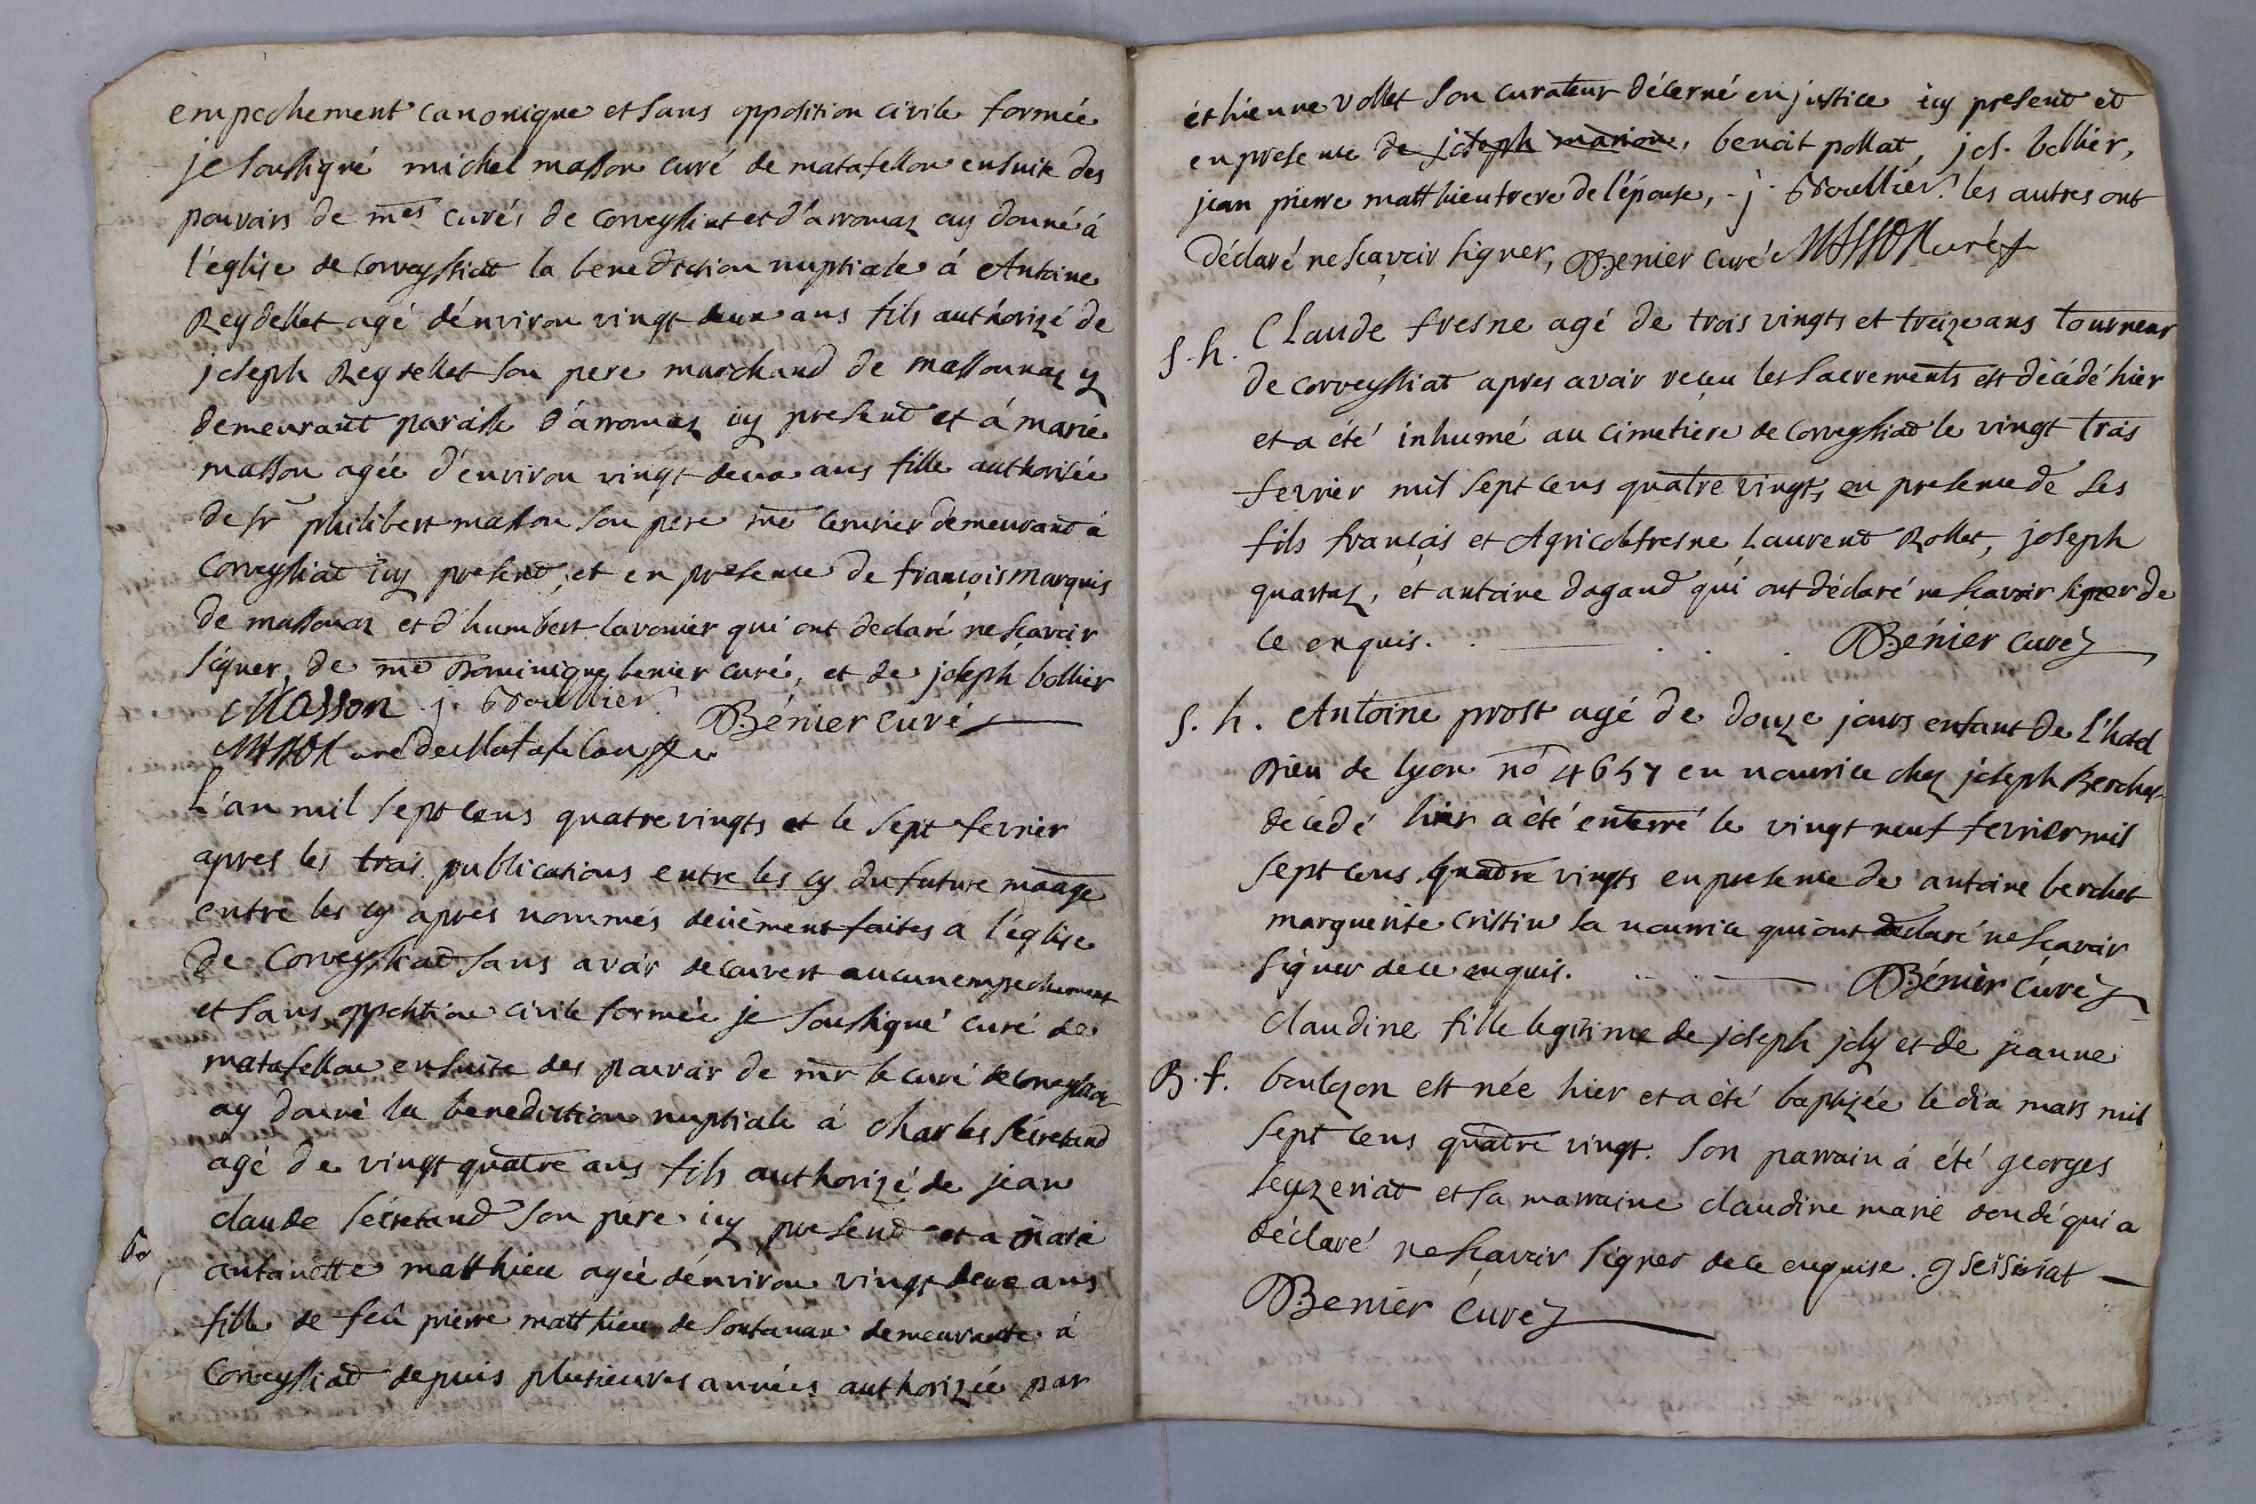 empechement canonique et sans opposition civile formée
je soussigné michel masson curé de matafellon ensuite des
pouvoirs de mes curés de Corveyssiat et d'arromaz ay donné á
l'église de Corveyssiat la benediction nuptiale á Antoine
Reydellet agé d'énviron vingt deux ans fils authorizé de
joseph Reydellet son pere marchand de massonnaz y
demeurant paroisse d'arromaz icy present et á marie
masson agée d'environ vingt deux ans fille authorisée
de sr philibert masson son pere me demeurant á
Corveyssiat icy present, et en presence de françois marquis
de massonaz et d'humbert lavonier qui ont declaré ne sçavoir
signer, de me Dominique benier curé, et de joseph bollier
Masson j. Boullier Bénier curé
Masson curé de Matafelon
L'an mil sept cens quatre vingts et le sept fevrier
apres les trois publications entre les cy du future maage
entre les cy apres nommés deüement faites á l'église
de Corveyssiad sans avoir decouvert aucun empechement
et sans opposition civile formée je soussigné curé de
matafellon ensuite des pouvoir de mr le curé de Corveyssiat
ay donné la benediction nuptiale á charles sécretand
agé de vingt quatre ans fils authorizé de jean
claude sécretand son pere icy present et a marie
antoinette matthieu agée d'énviron vingt deux ans
fille de feû pierre matthieu de demeurante á
Corveyssiad depuis plusieures années authorizée par
éthienne vollet son curateur décerné en justice icy present et
en presence de joseph marion, benoit pollat, jos. bollier,
jean pierre matthieu frere de l'épouse, - j. Boullier. les autres ont
déclaré ne sçavoir signer, Benier curé Masson curé
S. h. Claude fresne agé de trois vingts et treize ans tourneur
de corveyssiat apres avoir reçeu les sacrements est décédé hier
et a été inhumé au cimetiere de Corveyssiad le vingt trois
fevrier mil sept cens quatre vingts en presence de ses
fils françois et Agricole fresne Laurend Rollet, joseph
quartaz, et antoine dagand qui ont déclaré ne sçavoir signer de
ce enquis. Bénier curé
S. h. Antoine prost agé de douze jours enfant de l'hotel
Dieu de lyon no 4657 en nourrice chez joseph Berchet
décédé hier a été enterré le vingt neuf fevrier mil
sept cens quatre vingts en presence de antoine berchet
marguerite cristin sa nourrice qui ont declaré ne sçavoir
signer de ce enquis. Bénier curé
claudine fille legitime de joseph joly et de jeanne
B. f. boulçon est née hier et a été baptizée le dix mars mil
sept cens quatre vingt. Son parrain á été georges
seyzeriat et sa marraine claudine marie qui a
déclaré ne sçavoir signer de ce enquise. g seïsiriat
Benier curé